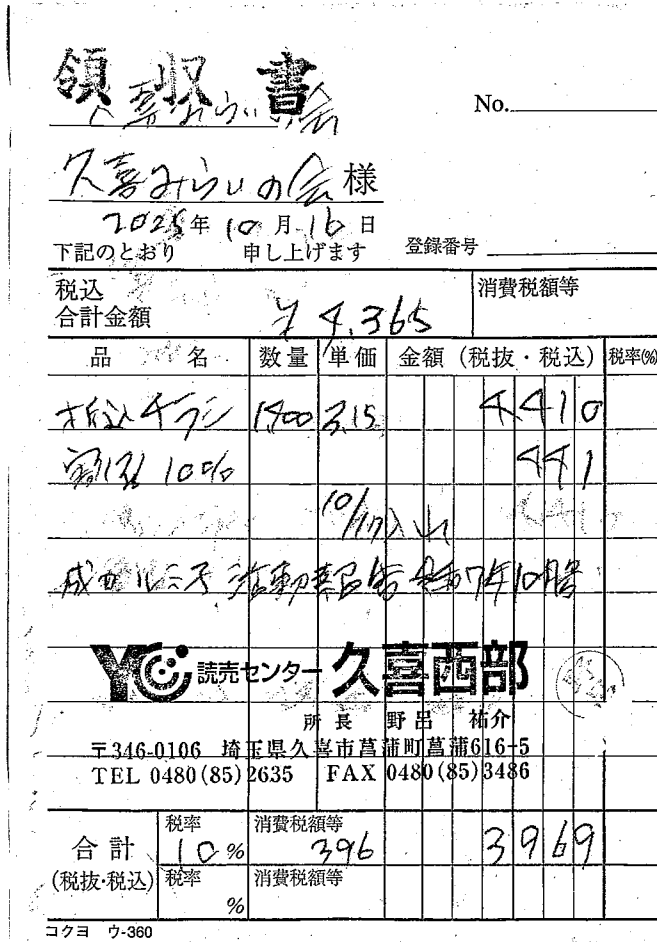 領収書
No.
久喜みらいの会 様
2025年 10月 16日
下記のとおり 申し上げます 登録番号
税込
合計金額 ¥4,365 消費税額等
品名 数量 単価 金額（税抜・税込） 税率(%)
折込チラシ 1400 3.15 4410
割引 10% 441
10/17入
成田ルミ子 活動報告 令和7年10月号
YC 読売センター 久喜西部
所長 野呂 祐介
〒346-0106 埼玉県久喜市菖蒲町菖蒲616-5
TEL 0480(85)2635 FAX 0480(85)3486
合計 税率 10% 消費税額等 396 3969
(税抜・税込) 税率 % 消費税額等
コクヨ ウ-360